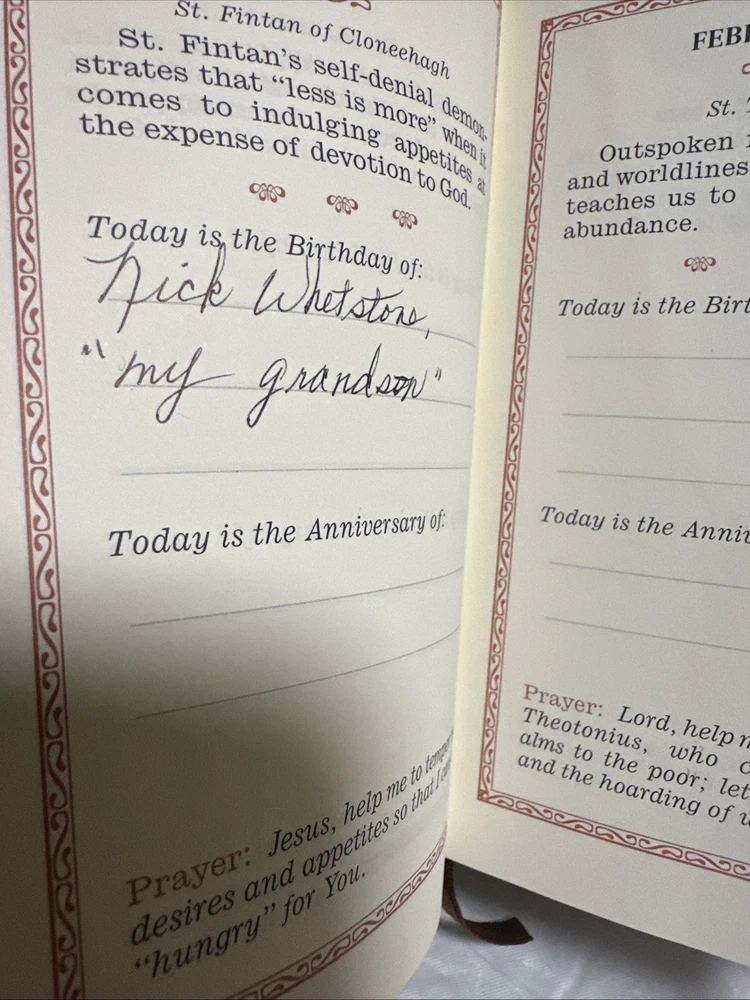 St. Fintan of Cloneehagh
St. Fintan's self-denial demon-
strates that "less is more" when it
comes to indulging appetites at
the expense of devotion to God.
Today is the Birthday of:
Nick Whetstone,
"my grandson"
Today is the Anniversary of:
Prayer: Jesus, help me to temper
desires and appetites so that I
"hungry" for You.
St.
Outspoken
and worldlines
teaches us to
abundance.
Today is the Birt
Today is the Anniv
Prayer: Lord, help
Theotonius, who
alms to the poor; let
and the hoarding of